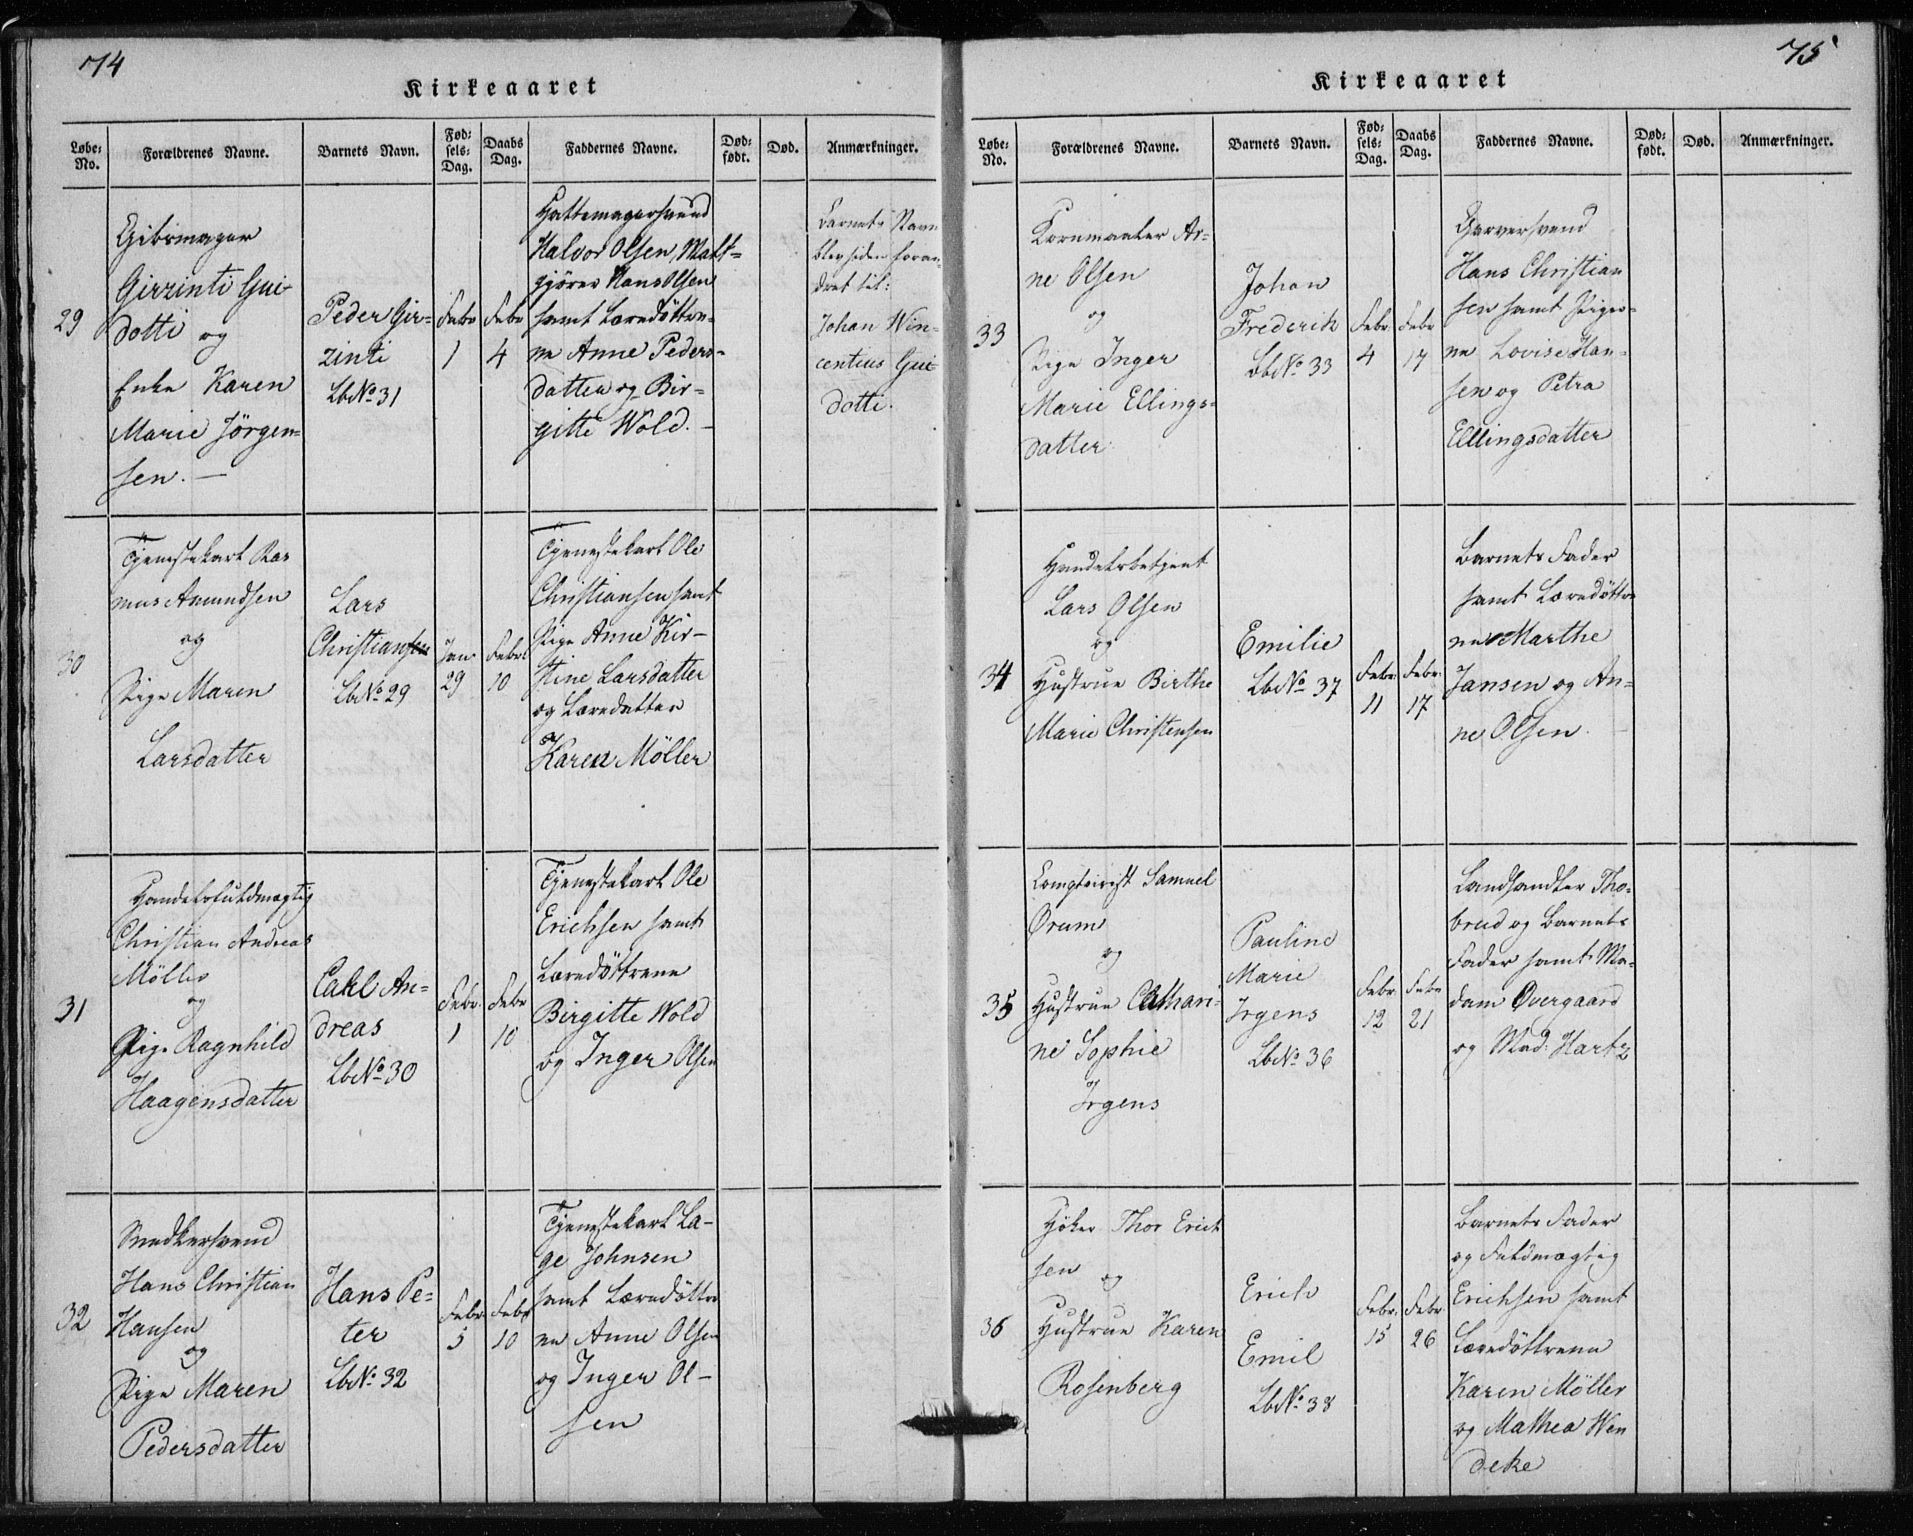 74
Kirkeaaret
Løbe-No.
Forældrenes Navne.
Barnets Navn.
Fødsels-Dag.
Daabs Dag.
Faddernes Navne.
Dødfødt.
Død.
Anmærkninger.
29
Gibsmager
Girzinti Gui-
dotti og
Enke Karen
Marie Jörgen-
sen. —
Peder Gir-
zinti
Lb. No. 31
Febr
1
Febr
4
Hattemagersvend
Halvor Olsen, Malt-
gjører Hans Olsen
samt Læredöttre-
ne Anne Peders-
datter og Bir-
gitte Wold. —
Barnets Navn
blev siden foran-
dret til:
Johan Win-
centius Gui-
dotti.
30
Tjenestekarl Ras
mus Amundsen
og
Pige Maren
Larsdatter
Lars
Christiansen
Lb. No. 29
Jan
29
Febr.
10
Tjenestekarl Ole
Christiansen samt
Pige Anne Kir-
stine Larsdatter
og Læredatter
Karen Möller
31
Handelsfuldmægtig
Christian Andreas
Möller
og
Pige Ragnhild
Haagensdatter
Carl An-
dreas
Lb. No. 30
Febr.
1
Febr
10
Tjenestekarl Ole
Erichsen samt
Læredöttrene
Birgitte Wold
og Inger Olsen
32
Snedkersvend
Hans Christian
Hansen
og
Pige Maren
Pedersdatter
Hans Pe-
ter
Lb. No. 32
Febr.
5
Febr
10
Tjenestekarl La-
ge Johnsen
samt Læredöttre
ne Anne Olsen
og Inger Ol-
sen
75
Kirkeaaret
Løbe-No.
Forældrenes Navne.
Barnets Navn.
Fødsels-Dag.
Daabs Dag.
Faddernes Navne.
Dødfødt.
Død.
Anmærkninger.
33
Kornmaaler Ar-
ne Olsen
og
Pige Inger
Marie Ellings-
datter
Johan
Frederik
Lb. No. 33
Febr.
4
Febr
17
Garversvend
Hans Christian
sen samt Piger-
ne Lovise Han-
sen og Petra
Ellingsdatter
34
Handelsbetjent
Lars Olsen
og
Hustrue Birthe
Marie Christensen
Emilie
Lb. No. 37
Febr.
11
Febr.
17
Barnets Fader
samt Læredöttre
ne Marthe
Jansen og An-
ne Olsen.
35
Samuel
Örum
og
Hustrue Cathari-
ne Sophie
Irgens
Pauline
Marie
Irgens
Lb. No. 36
Febr.
12
Febr
21
Landhandler Tho-
brud og Barnets
Fader samt Ma-
dam Övergaard
og Mad: Hartz
36
Höker Thor Erich
sen og
Hustrue Karen
Rosenberg
Erich
Emil
Lb. No. 38
Febr.
15
Febr.
26
Barnets Fader
og Fuldmægtig
Erichsen samt
Læredöttrene
Karen Möller
og Mathea Wen
deke